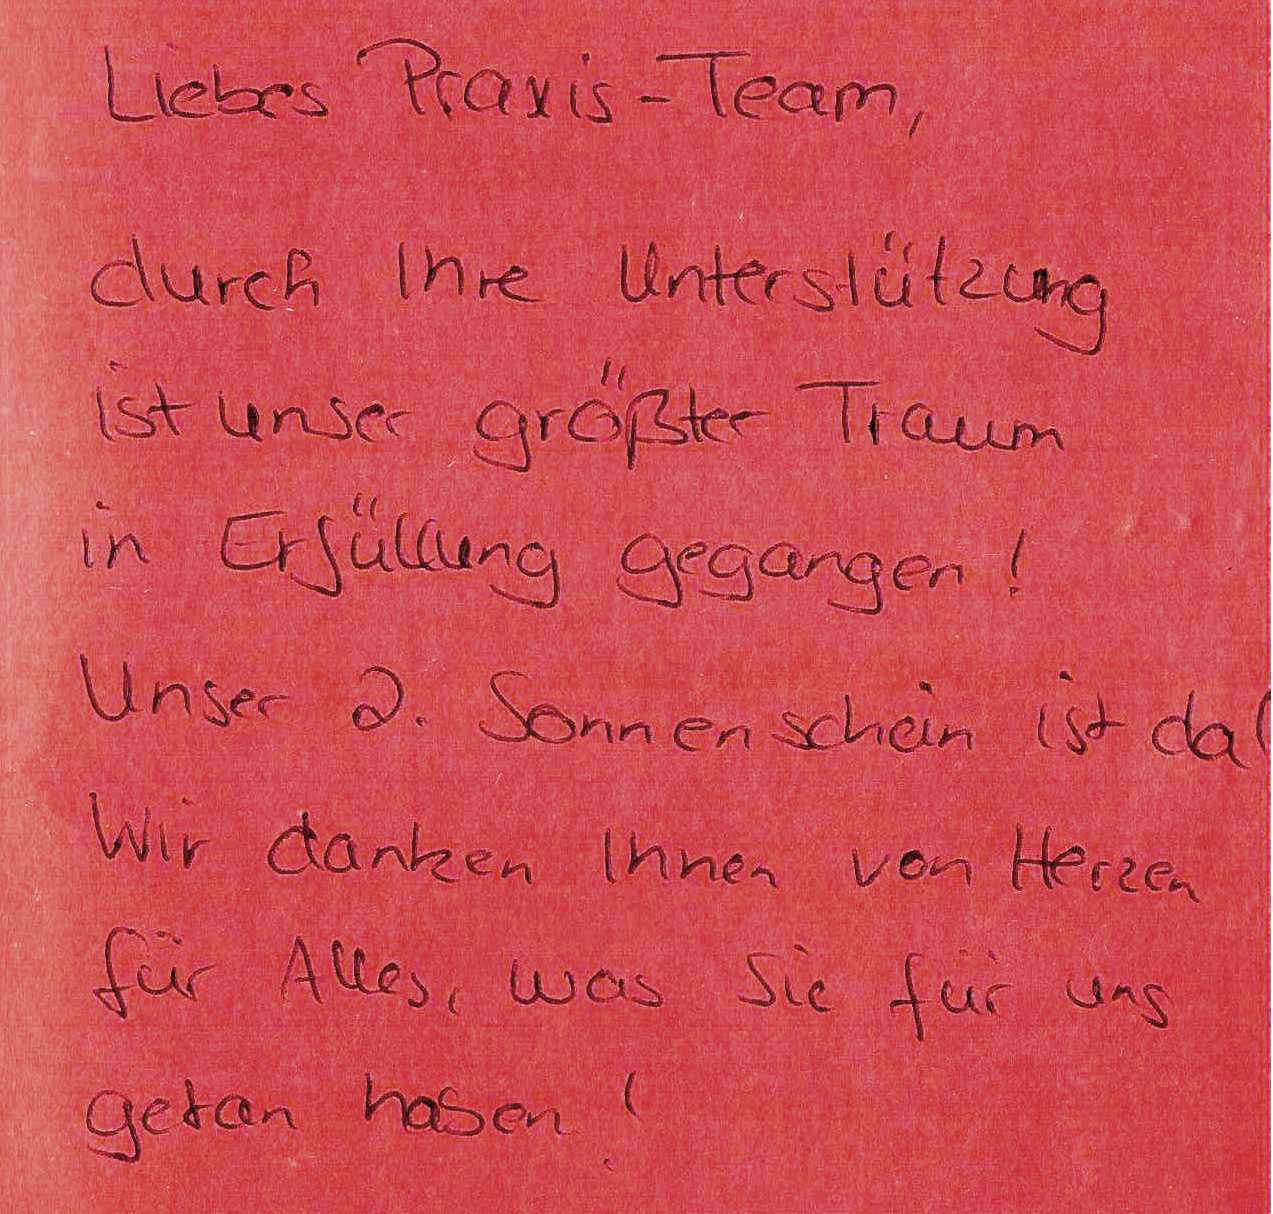 Liebes Praxis-Team,
durch Ihre Unterstützung
ist unser größter Traum
in Erfüllung gegangen!
Unser 2. Sonnenschein ist da!
Wir danken Ihnen von Herzen
für Alles, was Sie für uns
getan haben!